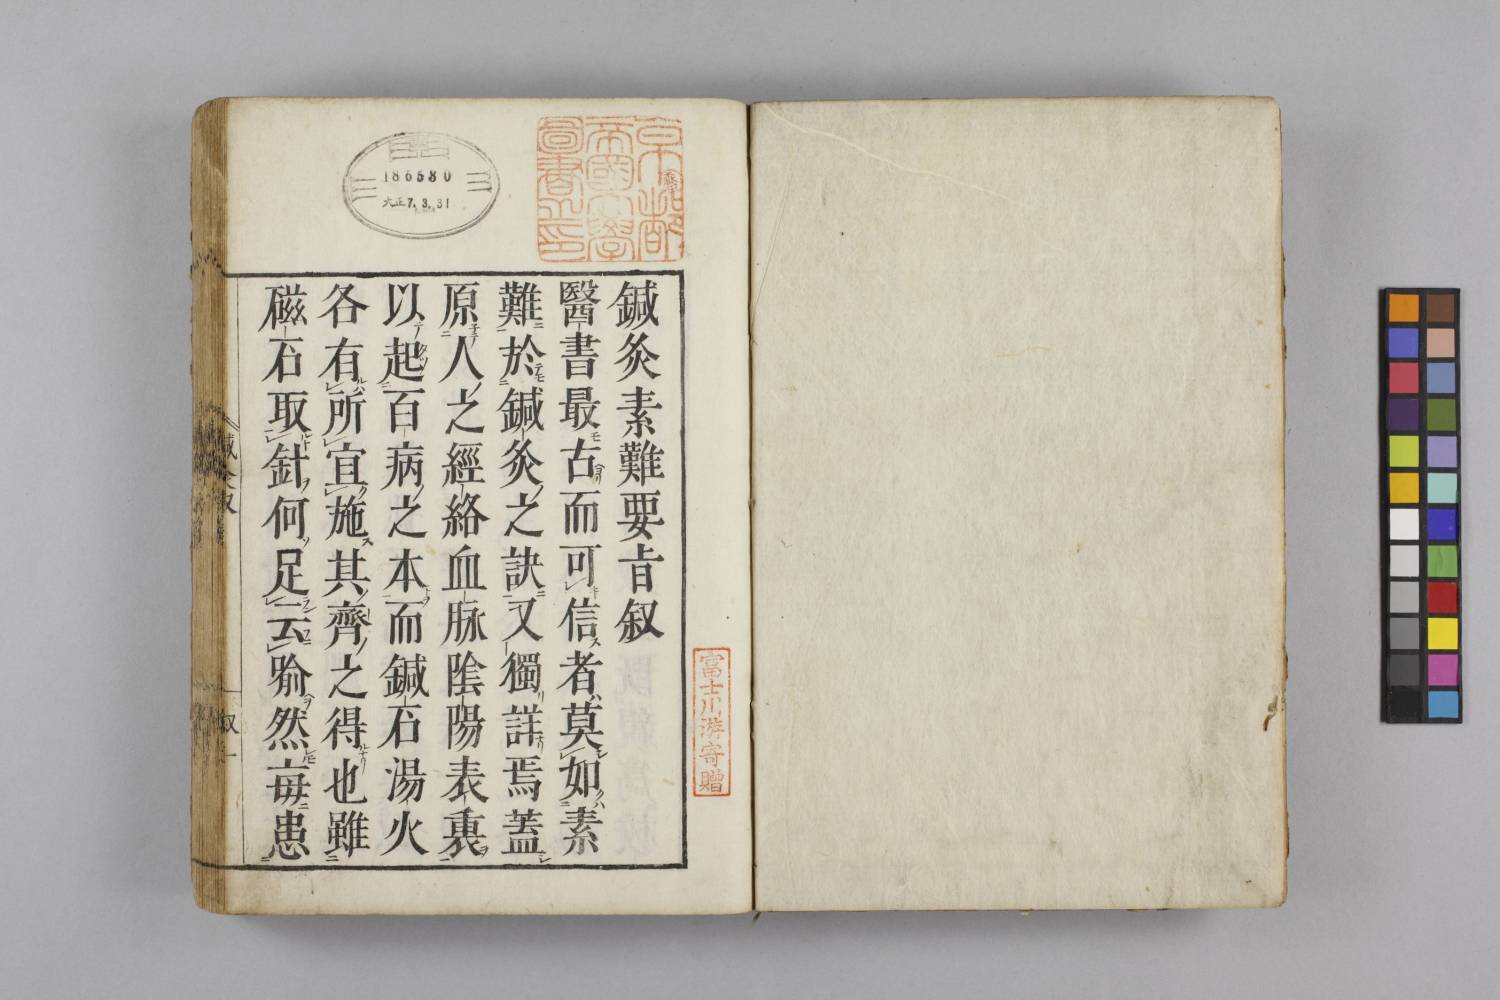 鍼灸素難要旨叙
醫書最古而可信者莫如素
難於鍼灸之訣又獨詳焉蓋
原人之經絡血脉陰陽表裏
以起百病之本而鍼石湯火
各有所宜施其齊之得也雖
磁石取針何足云喻然毎患
富士川游寄贈
京都
帝國大學
圖書之印
186680
大正7.3.31
叙一